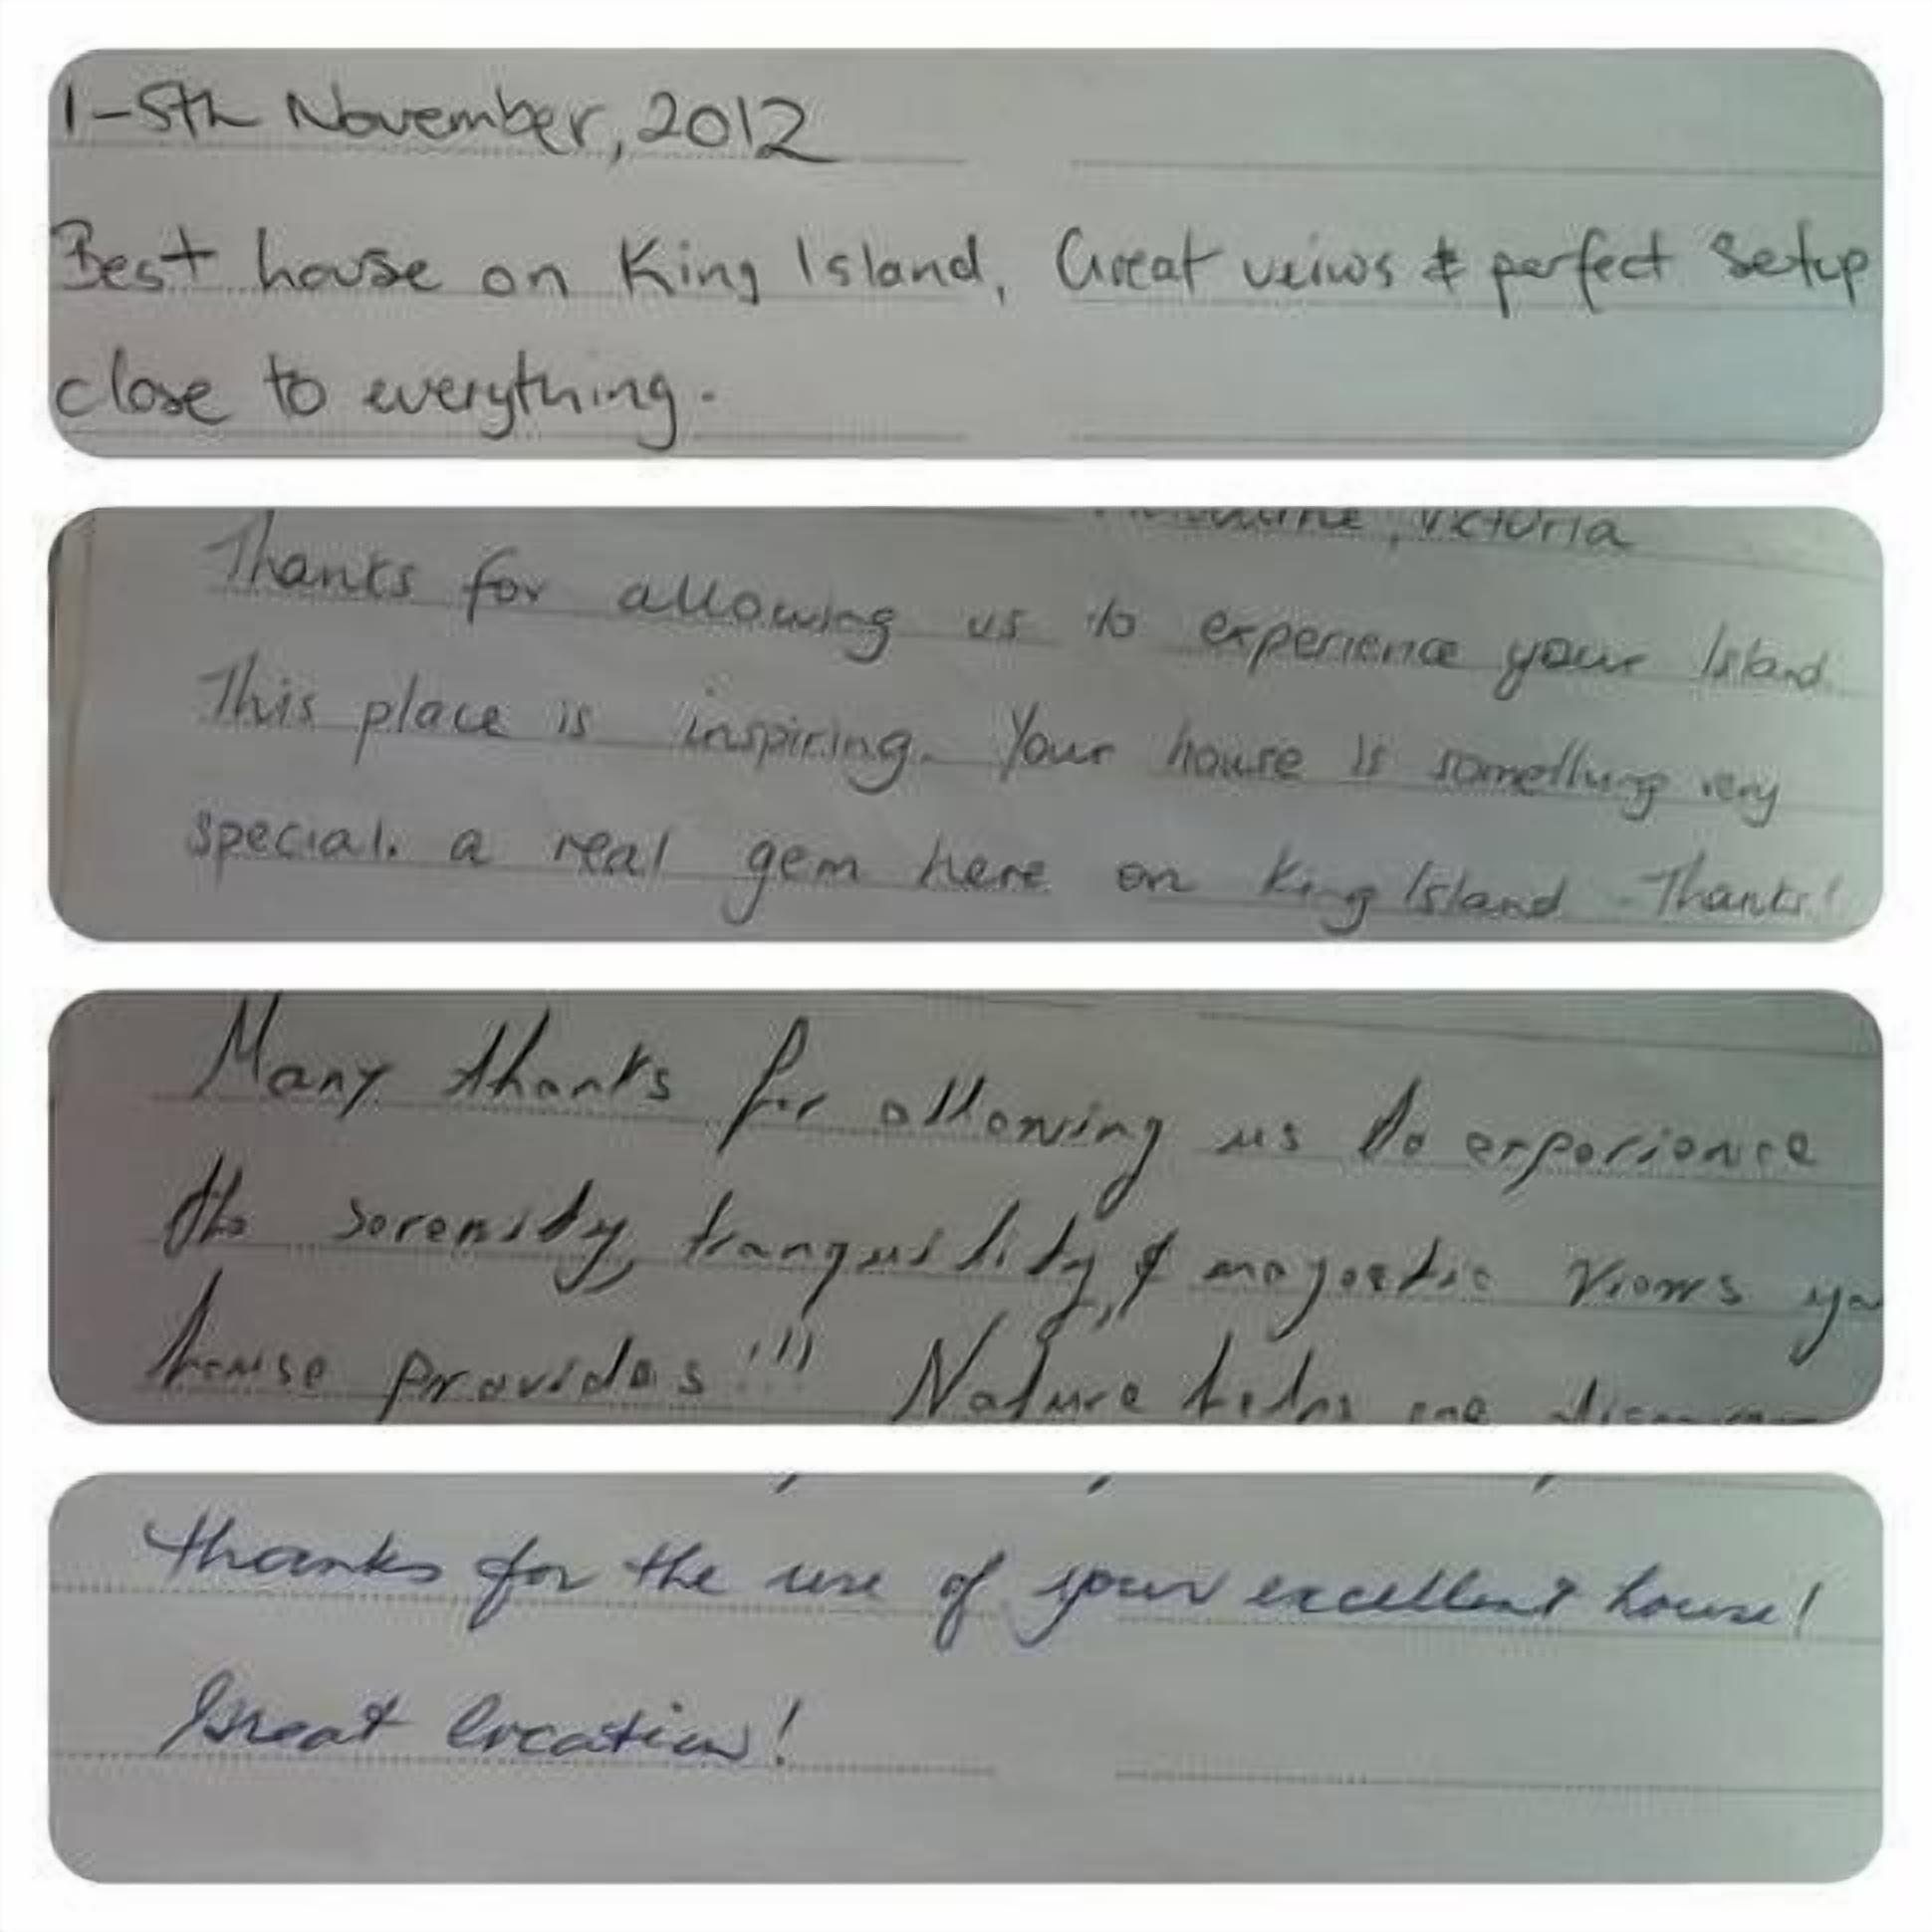 1-5th November, 2012
Best house on King Island, Great veiws & perfect setup
close to everything.
Victoria
Thanks for allowing us to experience your Island.
This place is inspiring. Your house is something very
special. a real gem here on King Island - Thanks!
Many thanks for allowing us to experience
the serenity, tranquility, & majestic views
house provides!!! Nature helps one
Thanks for the use of your excellent house!
Great location!